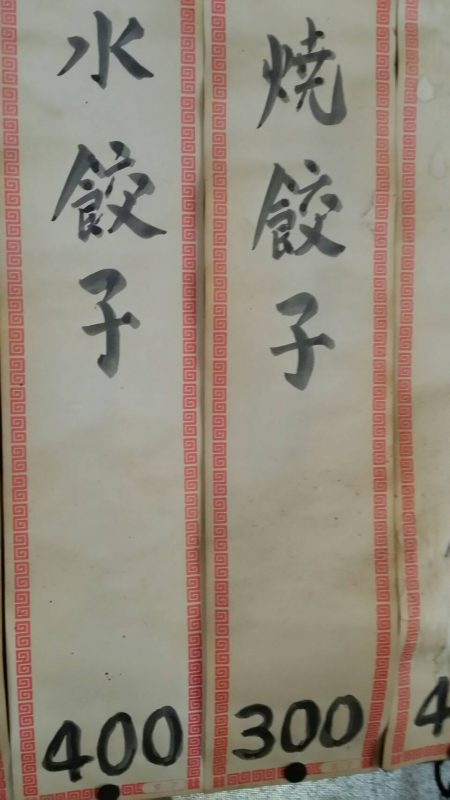 焼餃子
300
水餃子
400